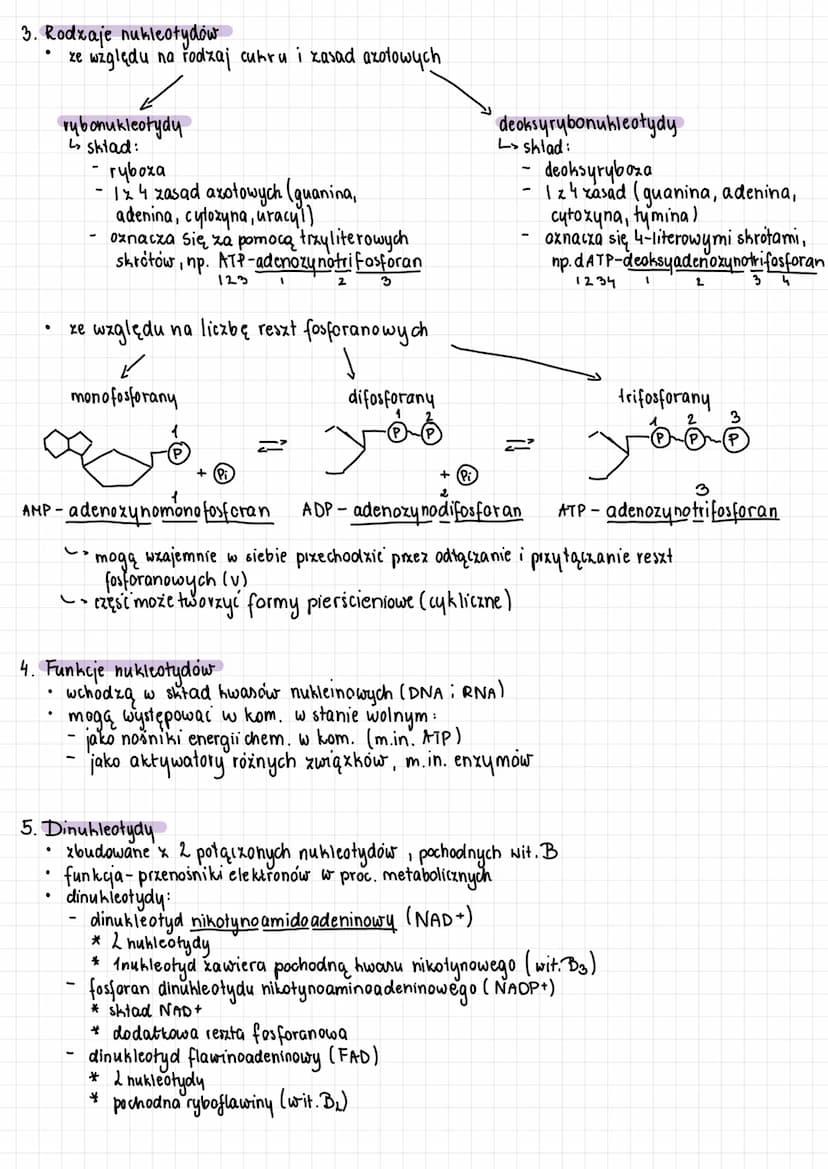 3. Rodzaje nukleotydów
• ze względu na rodzaj cukru i zasad azotowych
rybonukleotydy
↳ skład:
- ryboza
- 1 z 4 zasad azotowych (guanina,
adenina, cytozyna, uracyl)
- oznacza się za pomocą trzyliterowych
skrótów, np. ATP-adenozynotrifosforan
123 1 2 3
deoksyrybonukleotydy
↳ skład:
- deoksyryboza
- 1 z 4 zasad (guanina, adenina,
cytozyna, tymina)
- oznacza się 4-literowymi skrótami,
np. dATP-deoksyadenozynotrifosforan
1234 1 2 3 4
• ze względu na liczbę reszt fosforanowych
monofosforany
1
P
+ Pi
AMP - adenozynomonofosforan
1
⇌
difosforany
1 2
P P
+ Pi
2
ADP - adenozynodifosforan
⇌
trifosforany
1 2 3
P P P
3
ATP - adenozynotrifosforan
↳ mogą wzajemnie w siebie przechodzić przez odłączanie i przyłączanie reszt
fosforanowych (V)
↳ część może tworzyć formy pierścieniowe (cykliczne)
4. Funkcje nukleotydów
• wchodzą w skład kwasów nukleinowych (DNA i RNA)
• mogą występować w kom. w stanie wolnym:
- jako nośniki energii chem. w kom. (m.in. ATP)
- jako aktywatory różnych związków, m.in. enzymów
5. Dinukleotydy
• zbudowane z 2 połączonych nukleotydów, pochodnych wit. B
• funkcja - przenośniki elektronów w proc. metabolicznych
• dinukleotydy:
- dinukleotyd nikotynoamidoadeninowy (NAD+)
* 2 nukleotydy
* 1 nukleotyd zawiera pochodną kwasu nikotynowego (wit. B3)
- fosforan dinukleotydu nikotynoaminoadeninowego (NADP+)
* skład NAD+
* dodatkowa reszta fosforanowa
- dinukleotyd flawinoadeninowy (FAD)
* 2 nukleotydy
* pochodna ryboflawiny (wit. B2)